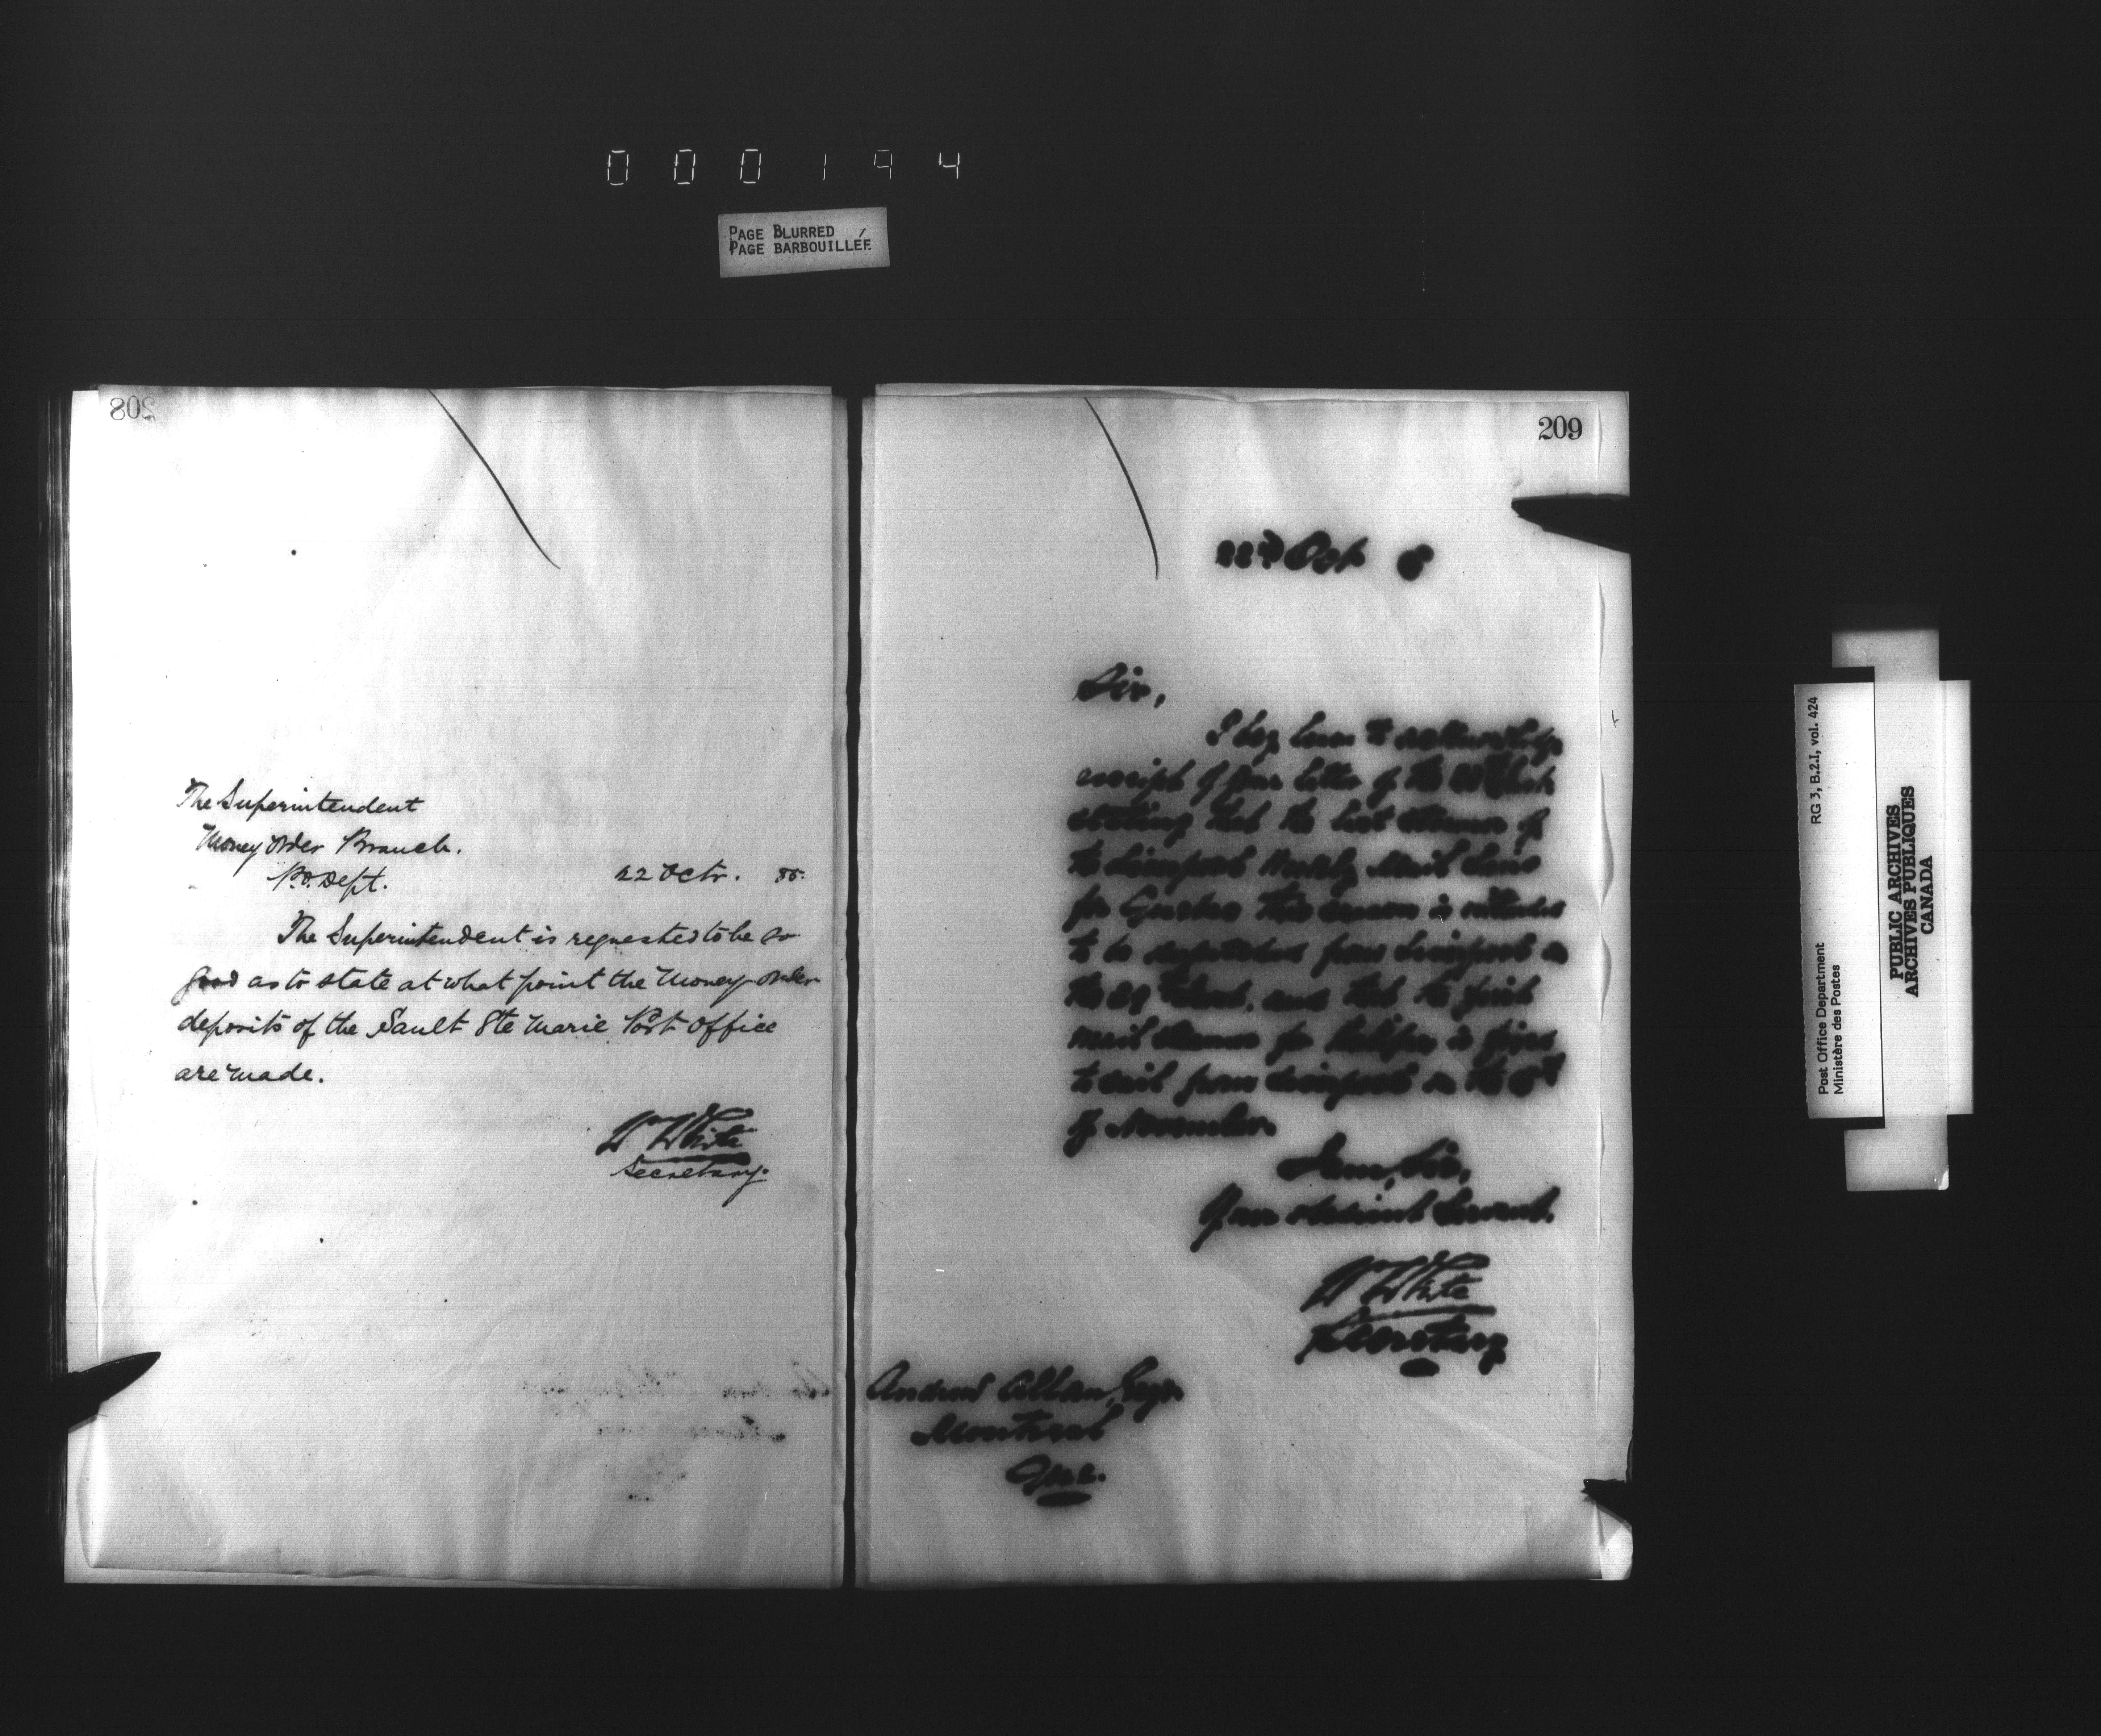 000194
PAGE BLURRED
PAGE BARBOUILLÉE
208
The Superintendent
Money Order Branch.
P.O. Dept.
22 Octr. 85.
The Superintendent is requested to be so
good as to state at what point the Money Order
deposits of the Sault Ste Marie Post Office
are made.
W White
Secretary.
209
22nd Oct 8
Sir,
I beg leave to acknowledge
receipt of your letter of the inst
stating that the last steamer of
the Liverpool Weekly Mail Line
for Quebec this season is intended
to be despatched from Liverpool on
the 29th inst. and that the first
mail steamer for Halifax is fixed
to sail from Liverpool on the 5th
of November.
I am, Sir,
Your obedient Servant.
W White
Secretary
Andrew Allan, Esqr.
Montreal
Que.
RG 3, B.2.I, vol. 424
Post Office Department
Ministère des Postes
PUBLIC ARCHIVES
ARCHIVES PUBLIQUES
CANADA